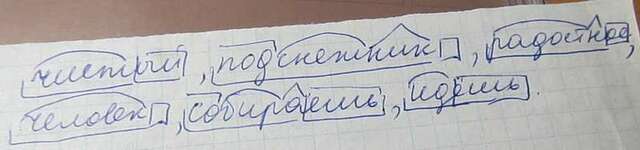 чистый, подснежник, радостное,
человек, собираешь, идёшь.